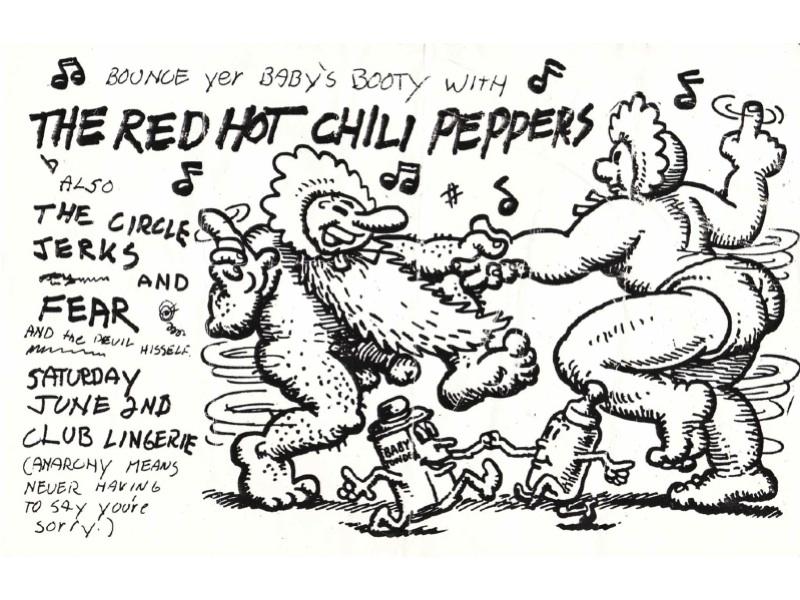 BOUNCE yer BABY'S BOOTY WITH
THE RED HOT CHILI PEPPERS
ALSO
THE CIRCLE
JERKS
AND
FEAR
AND the DEVIL
HISSELF
SATURDAY
JUNE 2ND
CLUB LINGERIE
(ANARCHY MEANS
NEVER HAVING
TO SAY you're
Sorry!)
BABY